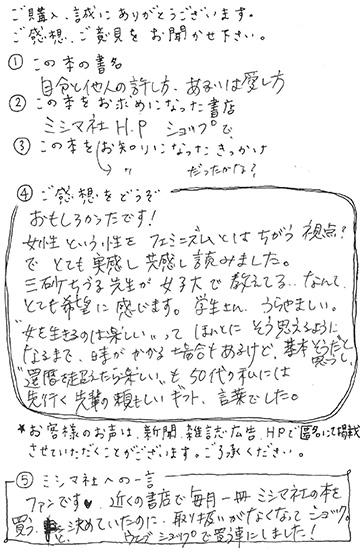 ご購入、誠にありがとうございます。
ご感想、ご意見を お聞かせ下さい。
① この本の書名
自分と他人の許し方、あるいは愛し方
② この本をお求めになった書店
ミシマ社 H.P ショップで、
③ この本をお知りになったきっかけ
〃 だったかな?
④ ご感想をどうぞ
おもしろかったです!
女性という性を フェミニズムとは ちがう 視点?
で とても実感し 共感し読みました。
三砂ちづる先生が 女子大で 教えてる…なんて、
とても希望に 感じます。 学生さん、うらやましい。
"女を生きるのは楽しい" って ほんとに そう思えるように
なるまで、時がかかる場合もあるけど、基本そうだと思うし、
"還暦を超えたら楽しい" も、50代の私には
先行く 先輩の頼もしいギフト、言葉でした。
*お客様のお声は、新聞、雑誌広告、HPで匿名にて掲載
させていただくことがございます。ご了承ください。
⑤ ミシマ社への一言
ファンです♥ 近くの書店で毎月一冊 ミシマ社の本を
買う、と 決めていたのに、取り扱いがなくなって ショック。
ウェブショップで買う運にしました!